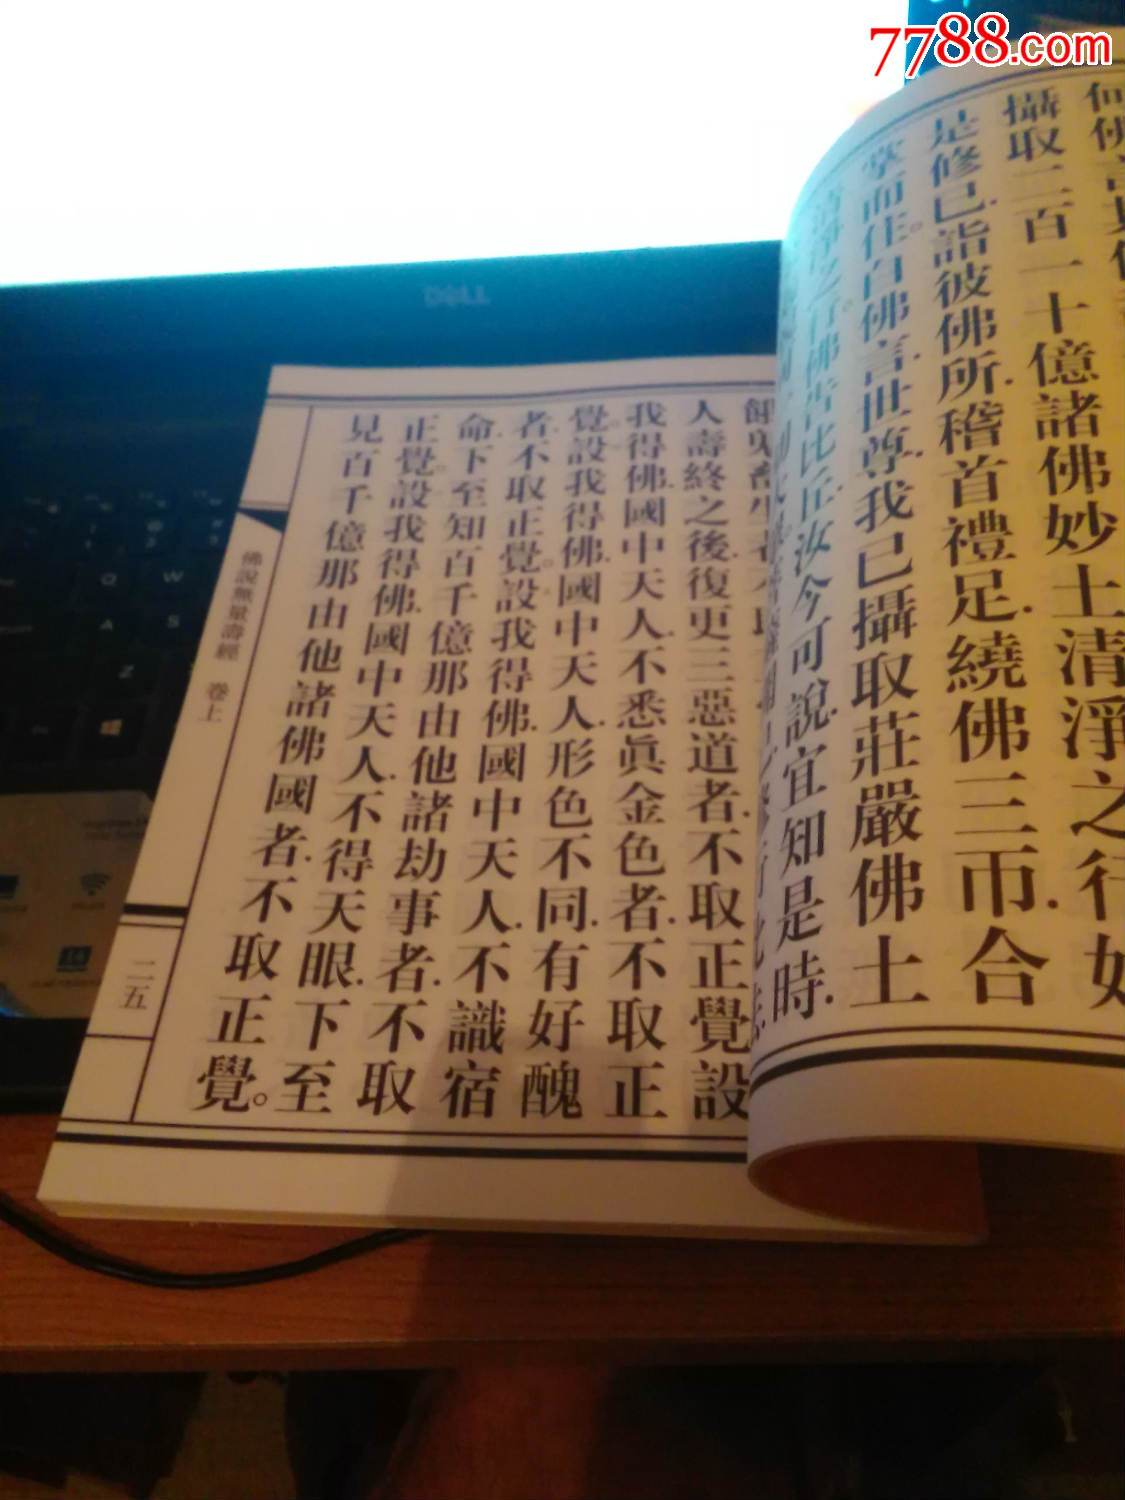 7788.com
DELL
攝取二百一十億諸佛妙土清淨之行
是修已.詣彼佛所.稽首禮足.繞佛三帀.合
掌而住。白佛言.世尊.我已攝取莊嚴佛土
清淨之行。佛告比丘.汝今可說.宜知是時.
人壽終之後.復更三惡道者.不取正覺設
我得佛.國中天人.不悉眞金色者.不取正
覺。設我得佛.國中天人.形色不同.有好醜
者.不取正覺。設我得佛.國中天人.不識宿
命.下至知百千億那由他諸劫事者.不取
正覺。設我得佛.國中天人.不得天眼.下至
見百千億那由他諸佛國者.不取正覺。
佛說無量壽經 卷上
二五